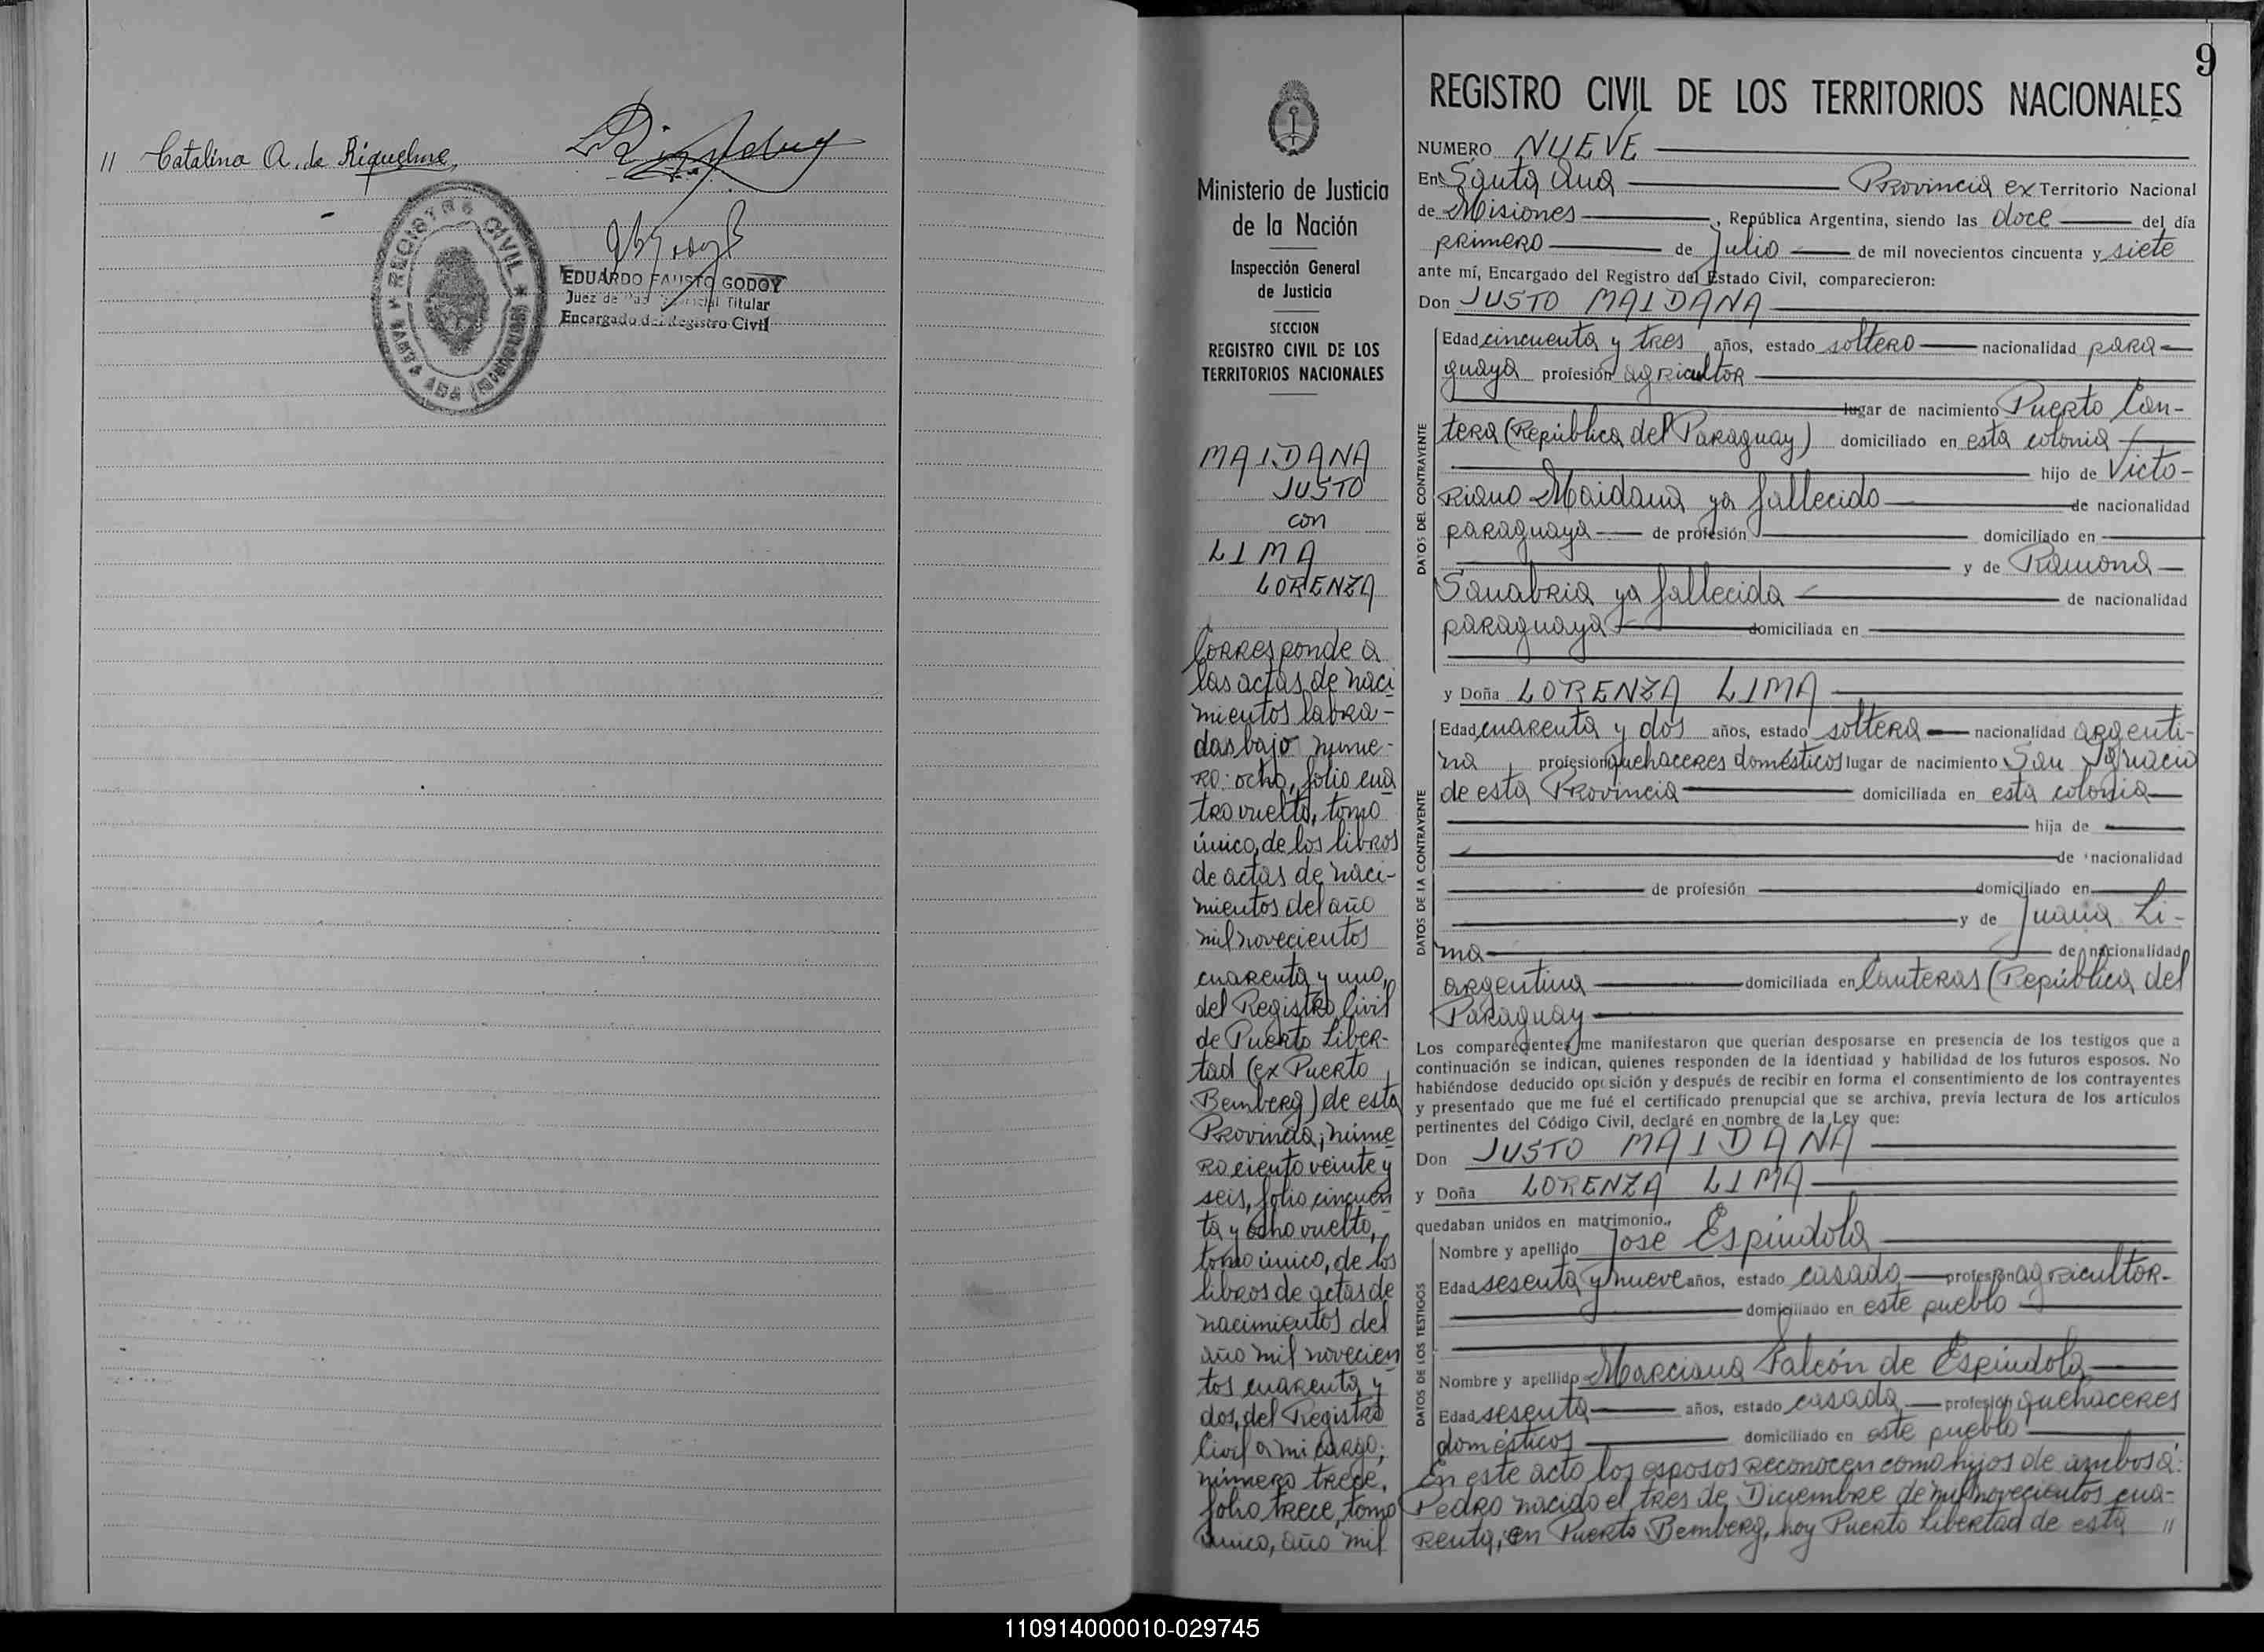 " Catalina A. de Riquelme
REGISTRO CIVIL
SANTA ANA (MISIONES)
EDUARDO FAUSTO GODOY
Juez de Paz Titular
Encargado del Registro Civil
9
Ministerio de Justicia
de la Nación
Inspección General
de Justicia
SECCION
REGISTRO CIVIL DE LOS
TERRITORIOS NACIONALES
MAIDANA
JUSTO
con
LIMA
LORENZA
Corresponde a
las actas de naci
mientos labra-
das bajo núme-
ro: ocho, folio cua
tro vuelto, tomo
único, de los libros
de actas de naci-
mientos del año
mil novecientos
cuarenta y uno,
del Registro Civil
de Puerto Liber-
tad (ex Puerto
Bemberg) de esta
Provincia; núme
ro ciento veinte y
seis, folio cincuen
ta y ocho vuelto,
tomo único, de los
libros de actas de
nacimientos del
año mil novecien
tos cuarenta y
dos, del Registro
Civil a mi cargo;
número trece,
folio trece, tomo
único, año mil
REGISTRO CIVIL DE LOS TERRITORIOS NACIONALES
NUMERO NUEVE
En Santa Ana Provincia ex Territorio Nacional
de Misiones, República Argentina, siendo las doce del día
primero de Julio de mil novecientos cincuenta y siete
ante mí, Encargado del Registro del Estado Civil, comparecieron:
Don JUSTO MAIDANA
DATOS DEL CONTRAYENTE
Edad cincuenta y tres años, estado soltero nacionalidad para-
guaya profesión agricultor
lugar de nacimiento Puerto Can-
tera (República del Paraguay) domiciliado en esta colonia
hijo de Victo-
riano Maidana ya fallecido de nacionalidad
paraguaya de profesión domiciliado en
y de Ramona
Sanabria ya fallecida de nacionalidad
paraguaya domiciliada en
y Doña LORENZA LIMA
DATOS DE LA CONTRAYENTE
Edad cuarenta y dos años, estado soltera nacionalidad argenti-
na profesion quehaceres domésticos lugar de nacimiento San Ignacio
de esta Provincia domiciliada en esta colonia
hija de
de nacionalidad
de profesión domiciliado en
y de Juana Li-
ma de nacionalidad
argentina domiciliada en Canteras (República del
Paraguay
Los comparecientes me manifestaron que querían desposarse en presencia de los testigos que a
continuación se indican, quienes responden de la identidad y habilidad de los futuros esposos. No
habiéndose deducido oposición y después de recibir en forma el consentimiento de los contrayentes
y presentado que me fué el certificado prenupcial que se archiva, previa lectura de los artículos
pertinentes del Código Civil, declaré en nombre de la Ley que:
Don JUSTO MAIDANA
y Doña LORENZA LIMA
quedaban unidos en matrimonio.
DATOS DE LOS TESTIGOS
Nombre y apellido José Espíndola
Edad sesenta y nueve años, estado casado profesión agricultor-
domiciliado en este pueblo
Nombre y apellido Marciana Falcón de Espíndola
Edad sesenta años, estado casada profesión quehaceres
domésticos domiciliado en este pueblo
En este acto los esposos reconocen como hijos de ambos a:
Pedro nacido el tres de Diciembre de mil novecientos cua-
renta, en Puerto Bemberg, hoy Puerto Libertad de esta "
110914000010-029745